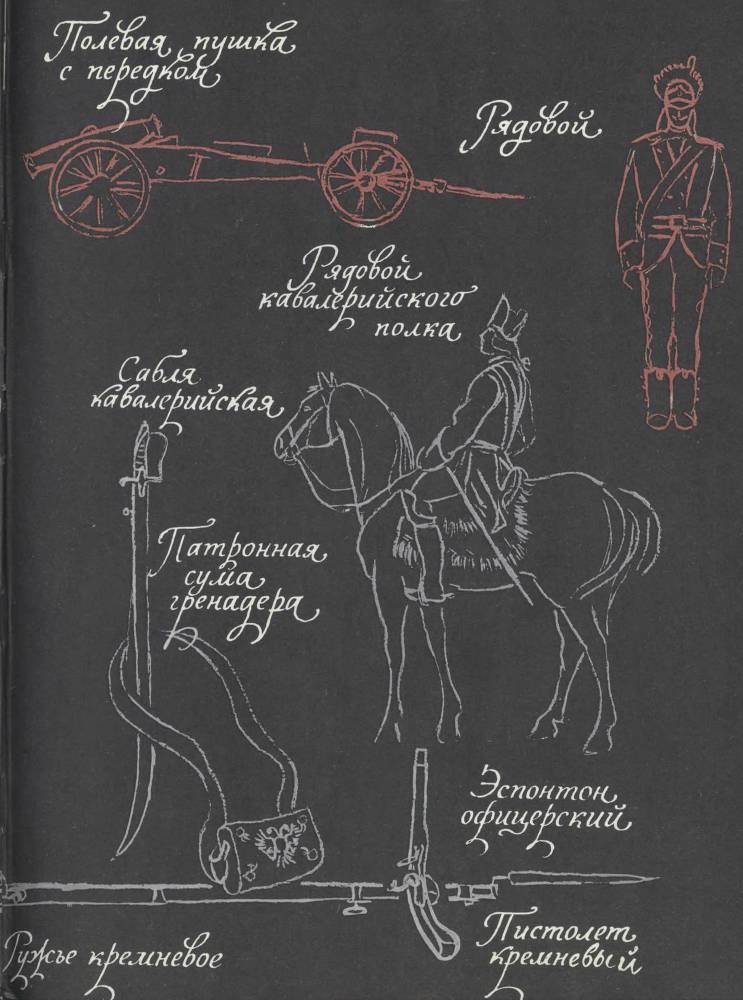 Полевая пушка
с передком
Рядовой
Рядовой
кавалерийского
полка
Сабля
кавалерийская
Патронная
сума
гренадера
Эспонтон
офицерский
Пистолет
кремневый
Ружье кремневое